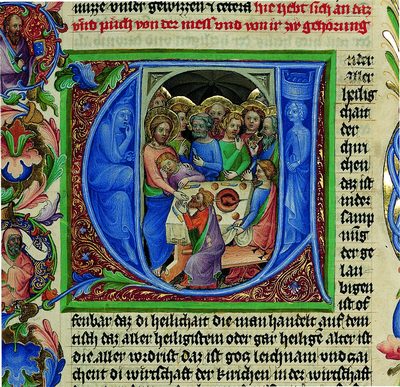 muze vnser gewizzen ⁊ cetera hie hebt sich an daz
vnd půch von der mess vnd von ir zů gehorung
nder
aller
heilig
chait
der
chir
chen
daz ist
in der
samp
nung
der ge
lau
bigen
ist of
fenbar daz di heilichait die man handelt auf dem
tisch daz aller heiligistem oder gar heilige alter ist
die aller wirdist daz ist gos leichnam vnd zai
chent di wirtschaft der kirchen in der wirtschaft